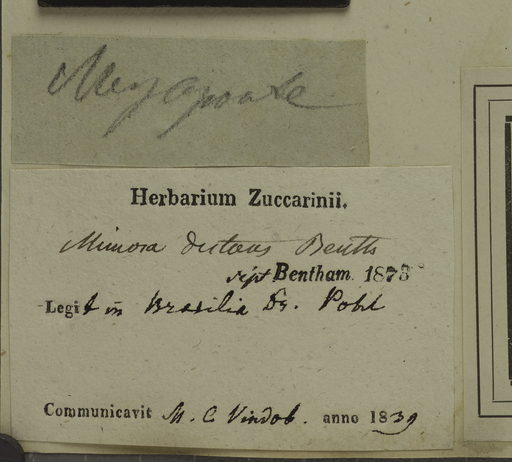 Meyaponte
Herbarium Zuccarinii.
Mimosa distans Benth
sipt Bentham 1873
Legit in Brasilia Dr. Pohl
Communicavit M. C. Vindob. anno 1839